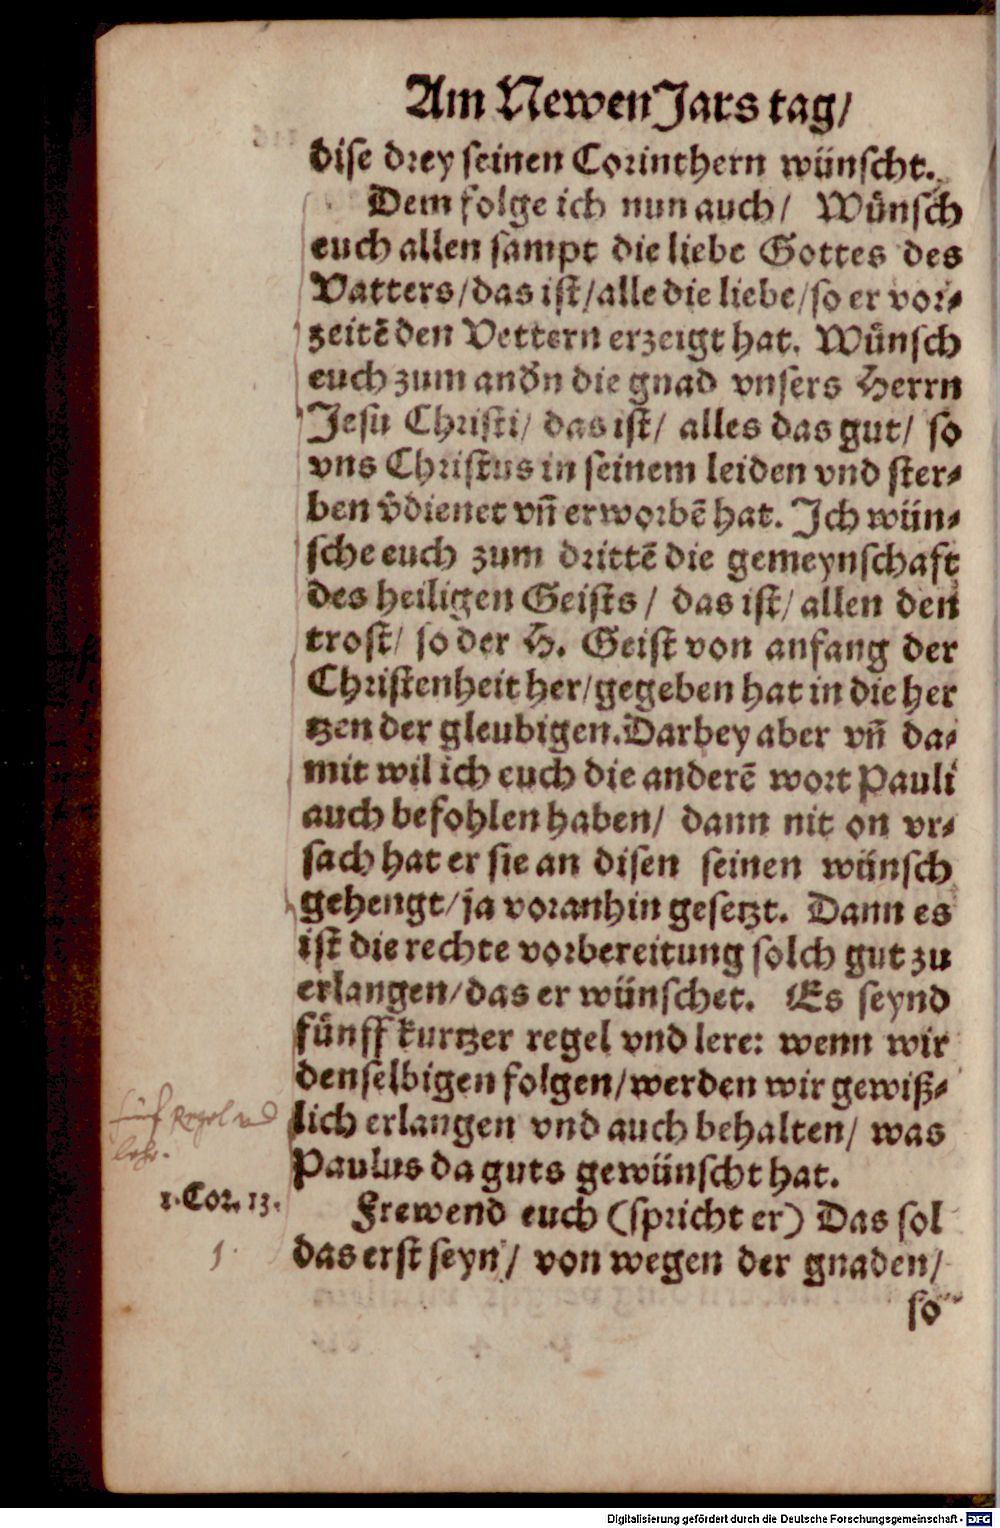 Am Newen Jars tag/
dise drey seinen Corinthern wünscht.
Dem folge ich nun auch/ Wünsch
euch allen sampt die liebe Gottes des
Vatters/das ist/alle die liebe/so er vor⸗
zeitē den Vettern erzeigt hat. Wünsch
euch zum andn̄ die gnad vnsers Herrn
Jesu Christi/ das ist/ alles das gut/ so
vns Christus in seinem leiden vnd ster⸗
ben v̄dienet vñ erworbē hat. Ich wün⸗
sche euch zum drittē die gemeynschaft
des heiligen Geists/ das ist/ allen den
trost/ so der H. Geist von anfang der
Christenheit her/gegeben hat in die her
tzen der gleubigen. Darbey aber vñ da⸗
mit wil ich euch die anderē wort Pauli
auch befohlen haben/ dann nit on vr⸗
sach hat er sie an disen seinen wünsch
gehengt/ja voranhin gesetzt. Dann es
ist die rechte vorbereitung solch gut zu
erlangen/das er wünschet. Es seynd
fünff kurtzer regel vnd lere: wenn wir
denselbigen folgen/werden wir gewiß⸗
fünf Regel vnd
lehr.
lich erlangen vnd auch behalten/ was
Paulus da guts gewünscht hat.
1. Cor. 13.
Frewend euch (spricht er) Das sol
1.
das erst seyn/ von wegen der gnaden/
so
Digitalisierung gefördert durch die Deutsche Forschungsgemeinschaft - DFG